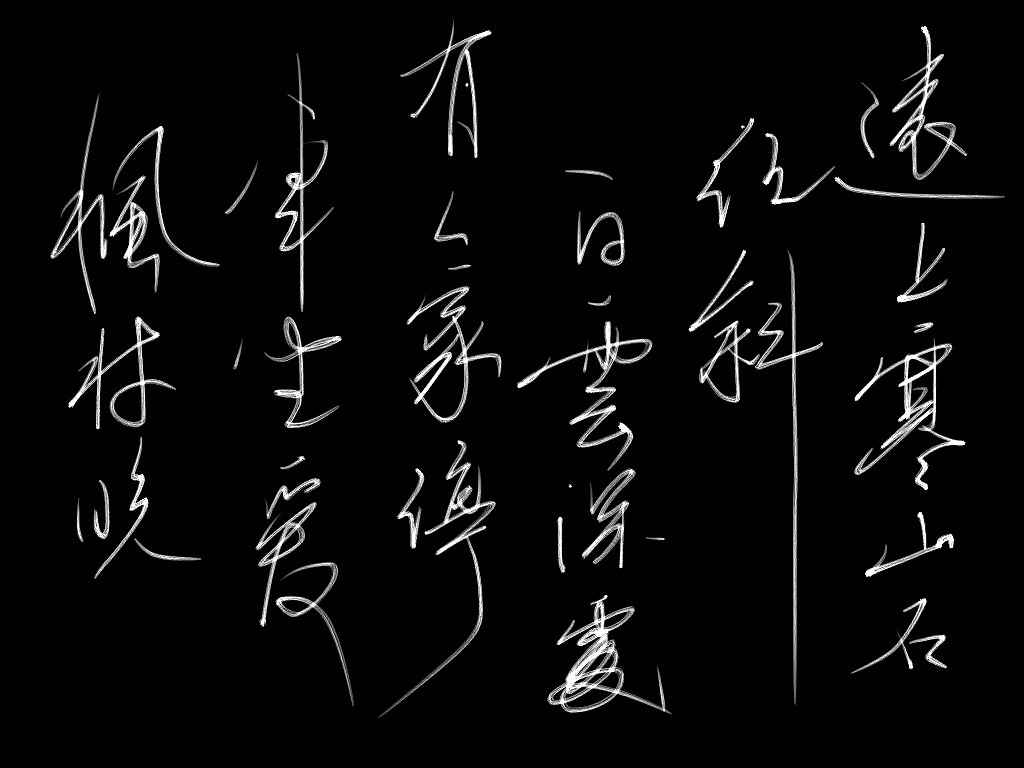 遠上寒山石
徑斜
白雲深處
有人家停
車坐愛
楓林晚